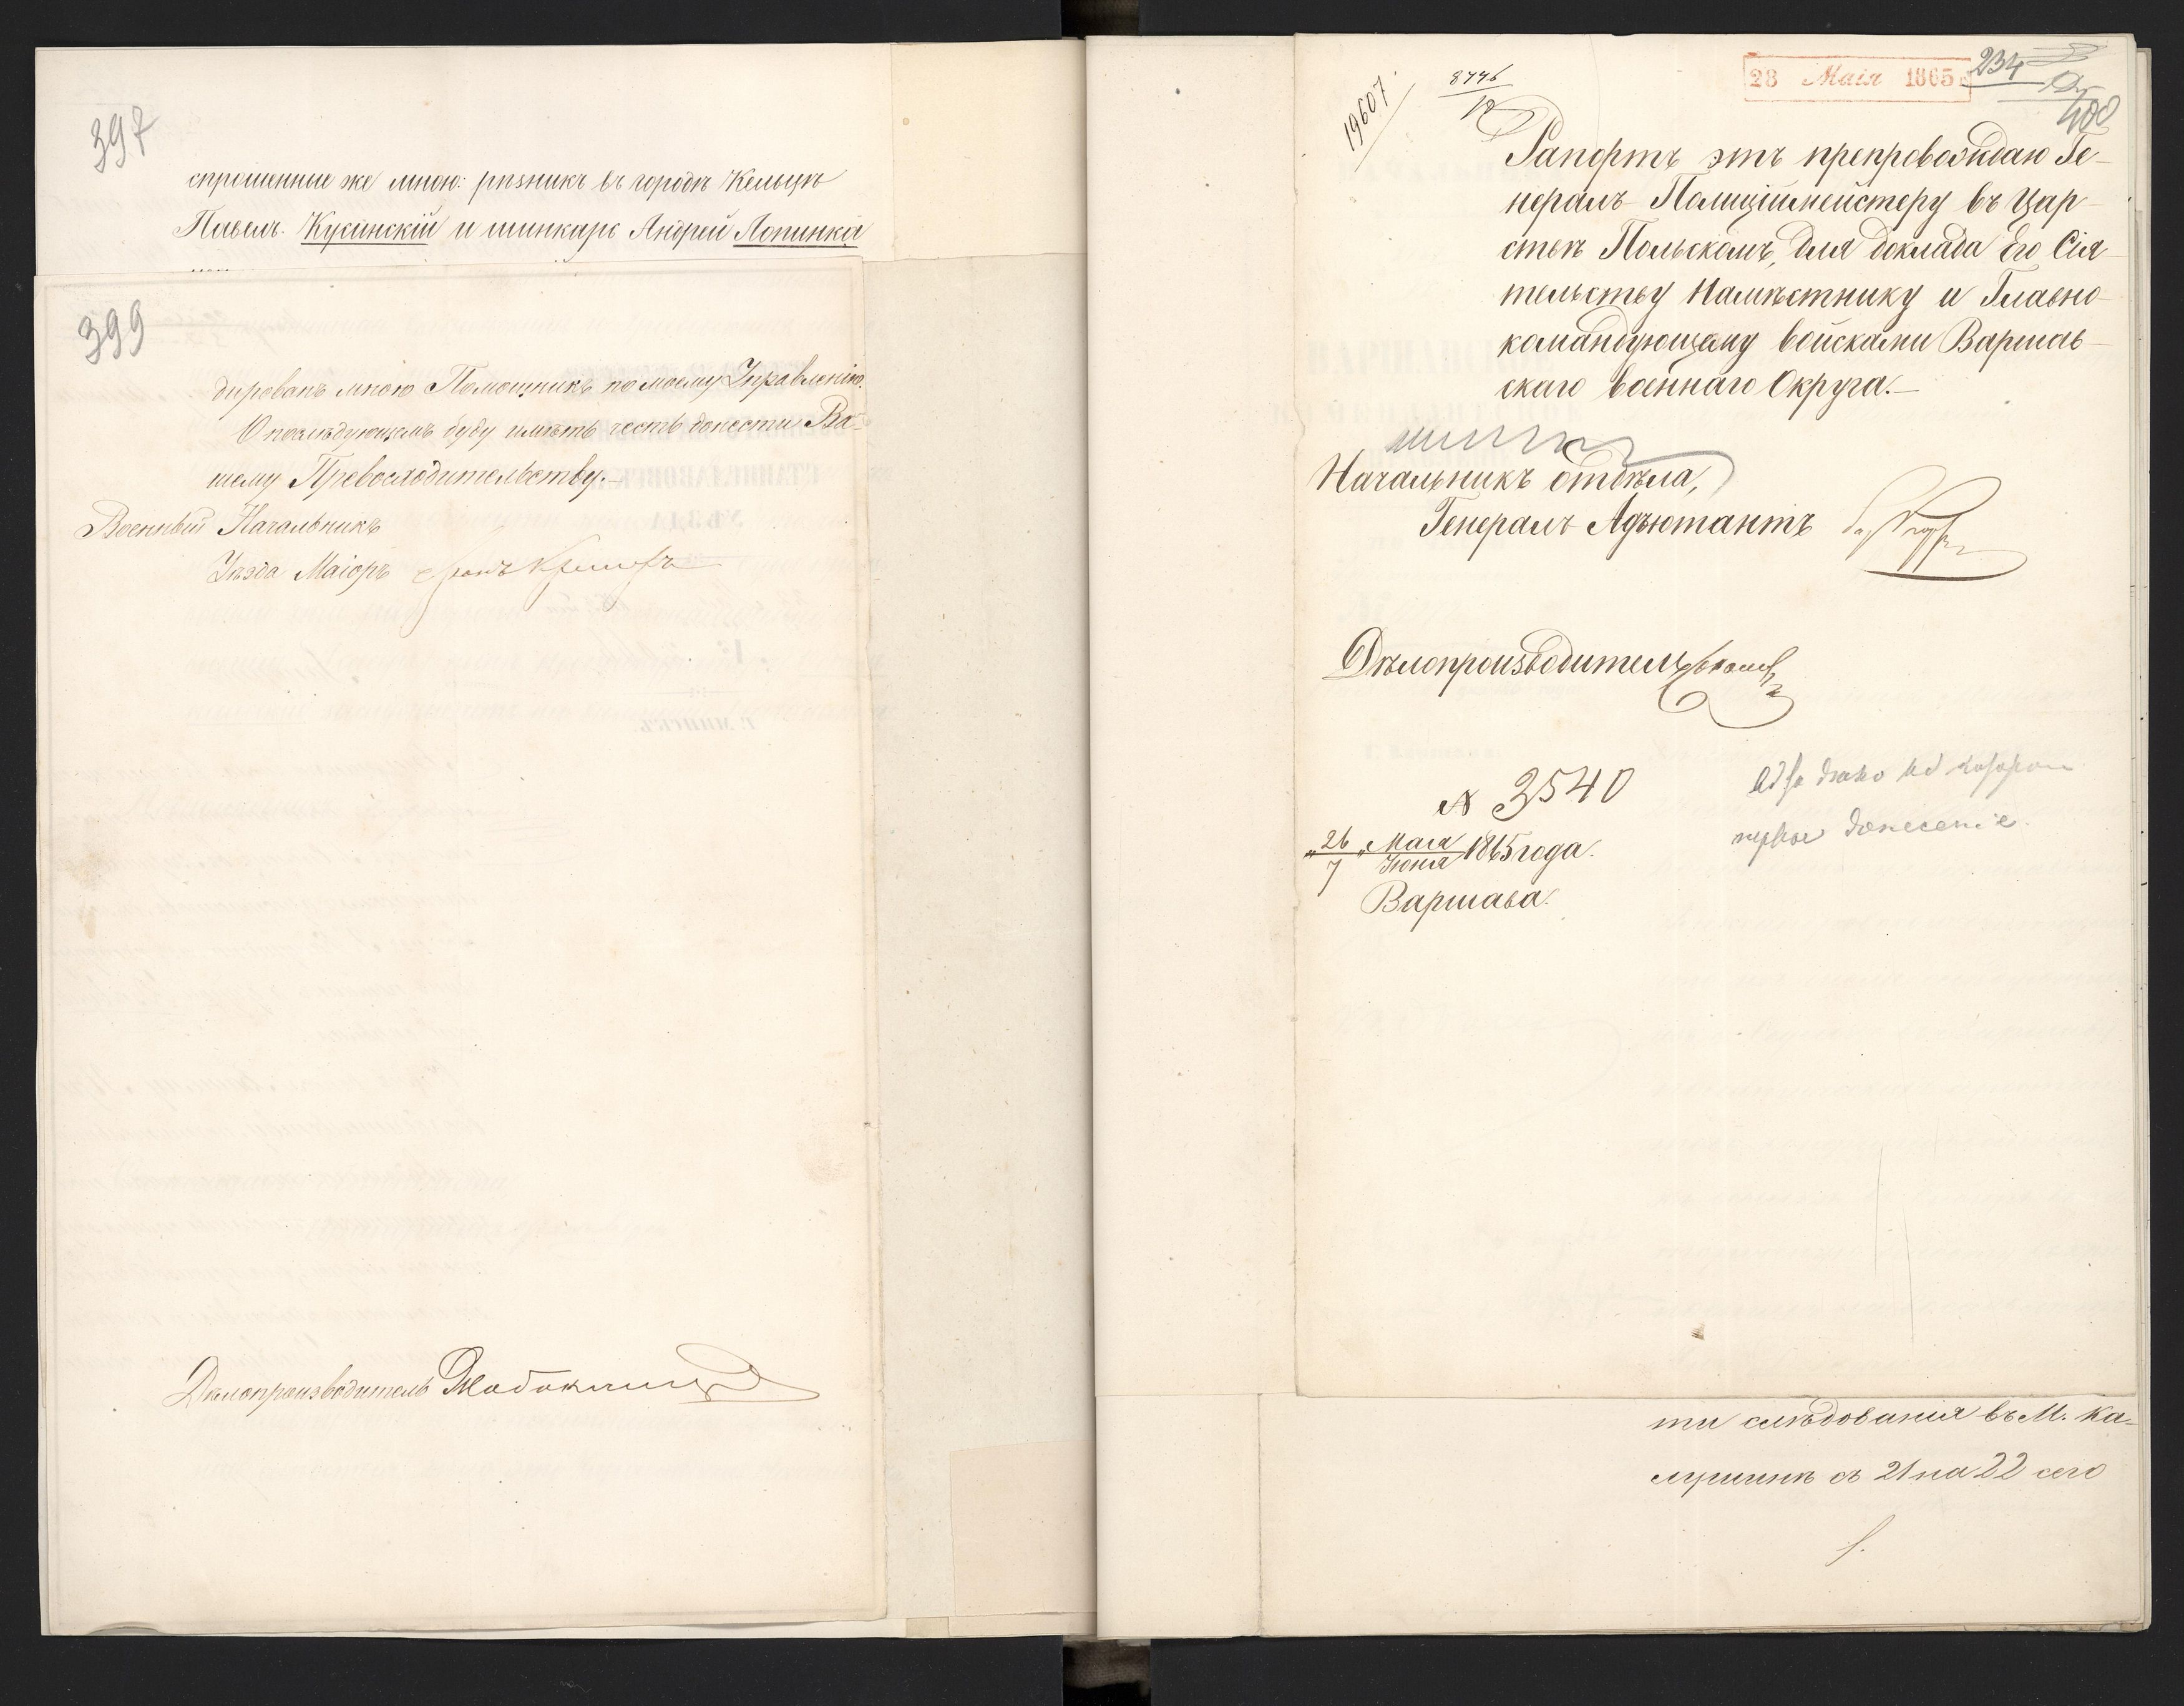 397
спрошенные же мною: рѣзникъ въ городѣ Кельцѣ
Павелъ Кусинскій и шинкарь Андрей Лопинка
399
дированъ мною Помощникъ по моему Управленію.
О послѣдующемъ буду имѣть честь донести Ва-
шему Превосходительству.
Военный Начальникъ
Уѣзда Маіоръ фонъ
Дѣлопроизводитель
19607
8746
28 Маія 1865
234
400
Рапортъ этъ препровождаю Ге-
нералъ-Полиціймейстеру въ Цар-
ствѣ Польскомъ, для доклада Его Сія-
тельству Намѣстнику и Главно-
командующему войсками Варшав-
скаго военнаго Округа.
Начальникъ отдѣла,
Генералъ Адъютантъ
Дѣлопроизводитель
№ 3540
"26" Мая
7 Іюня 1865 года.
Варшава.
первое донесеніе.
ти слѣдованія въ М. Ка-
лушинѣ съ 21 на 22 сего